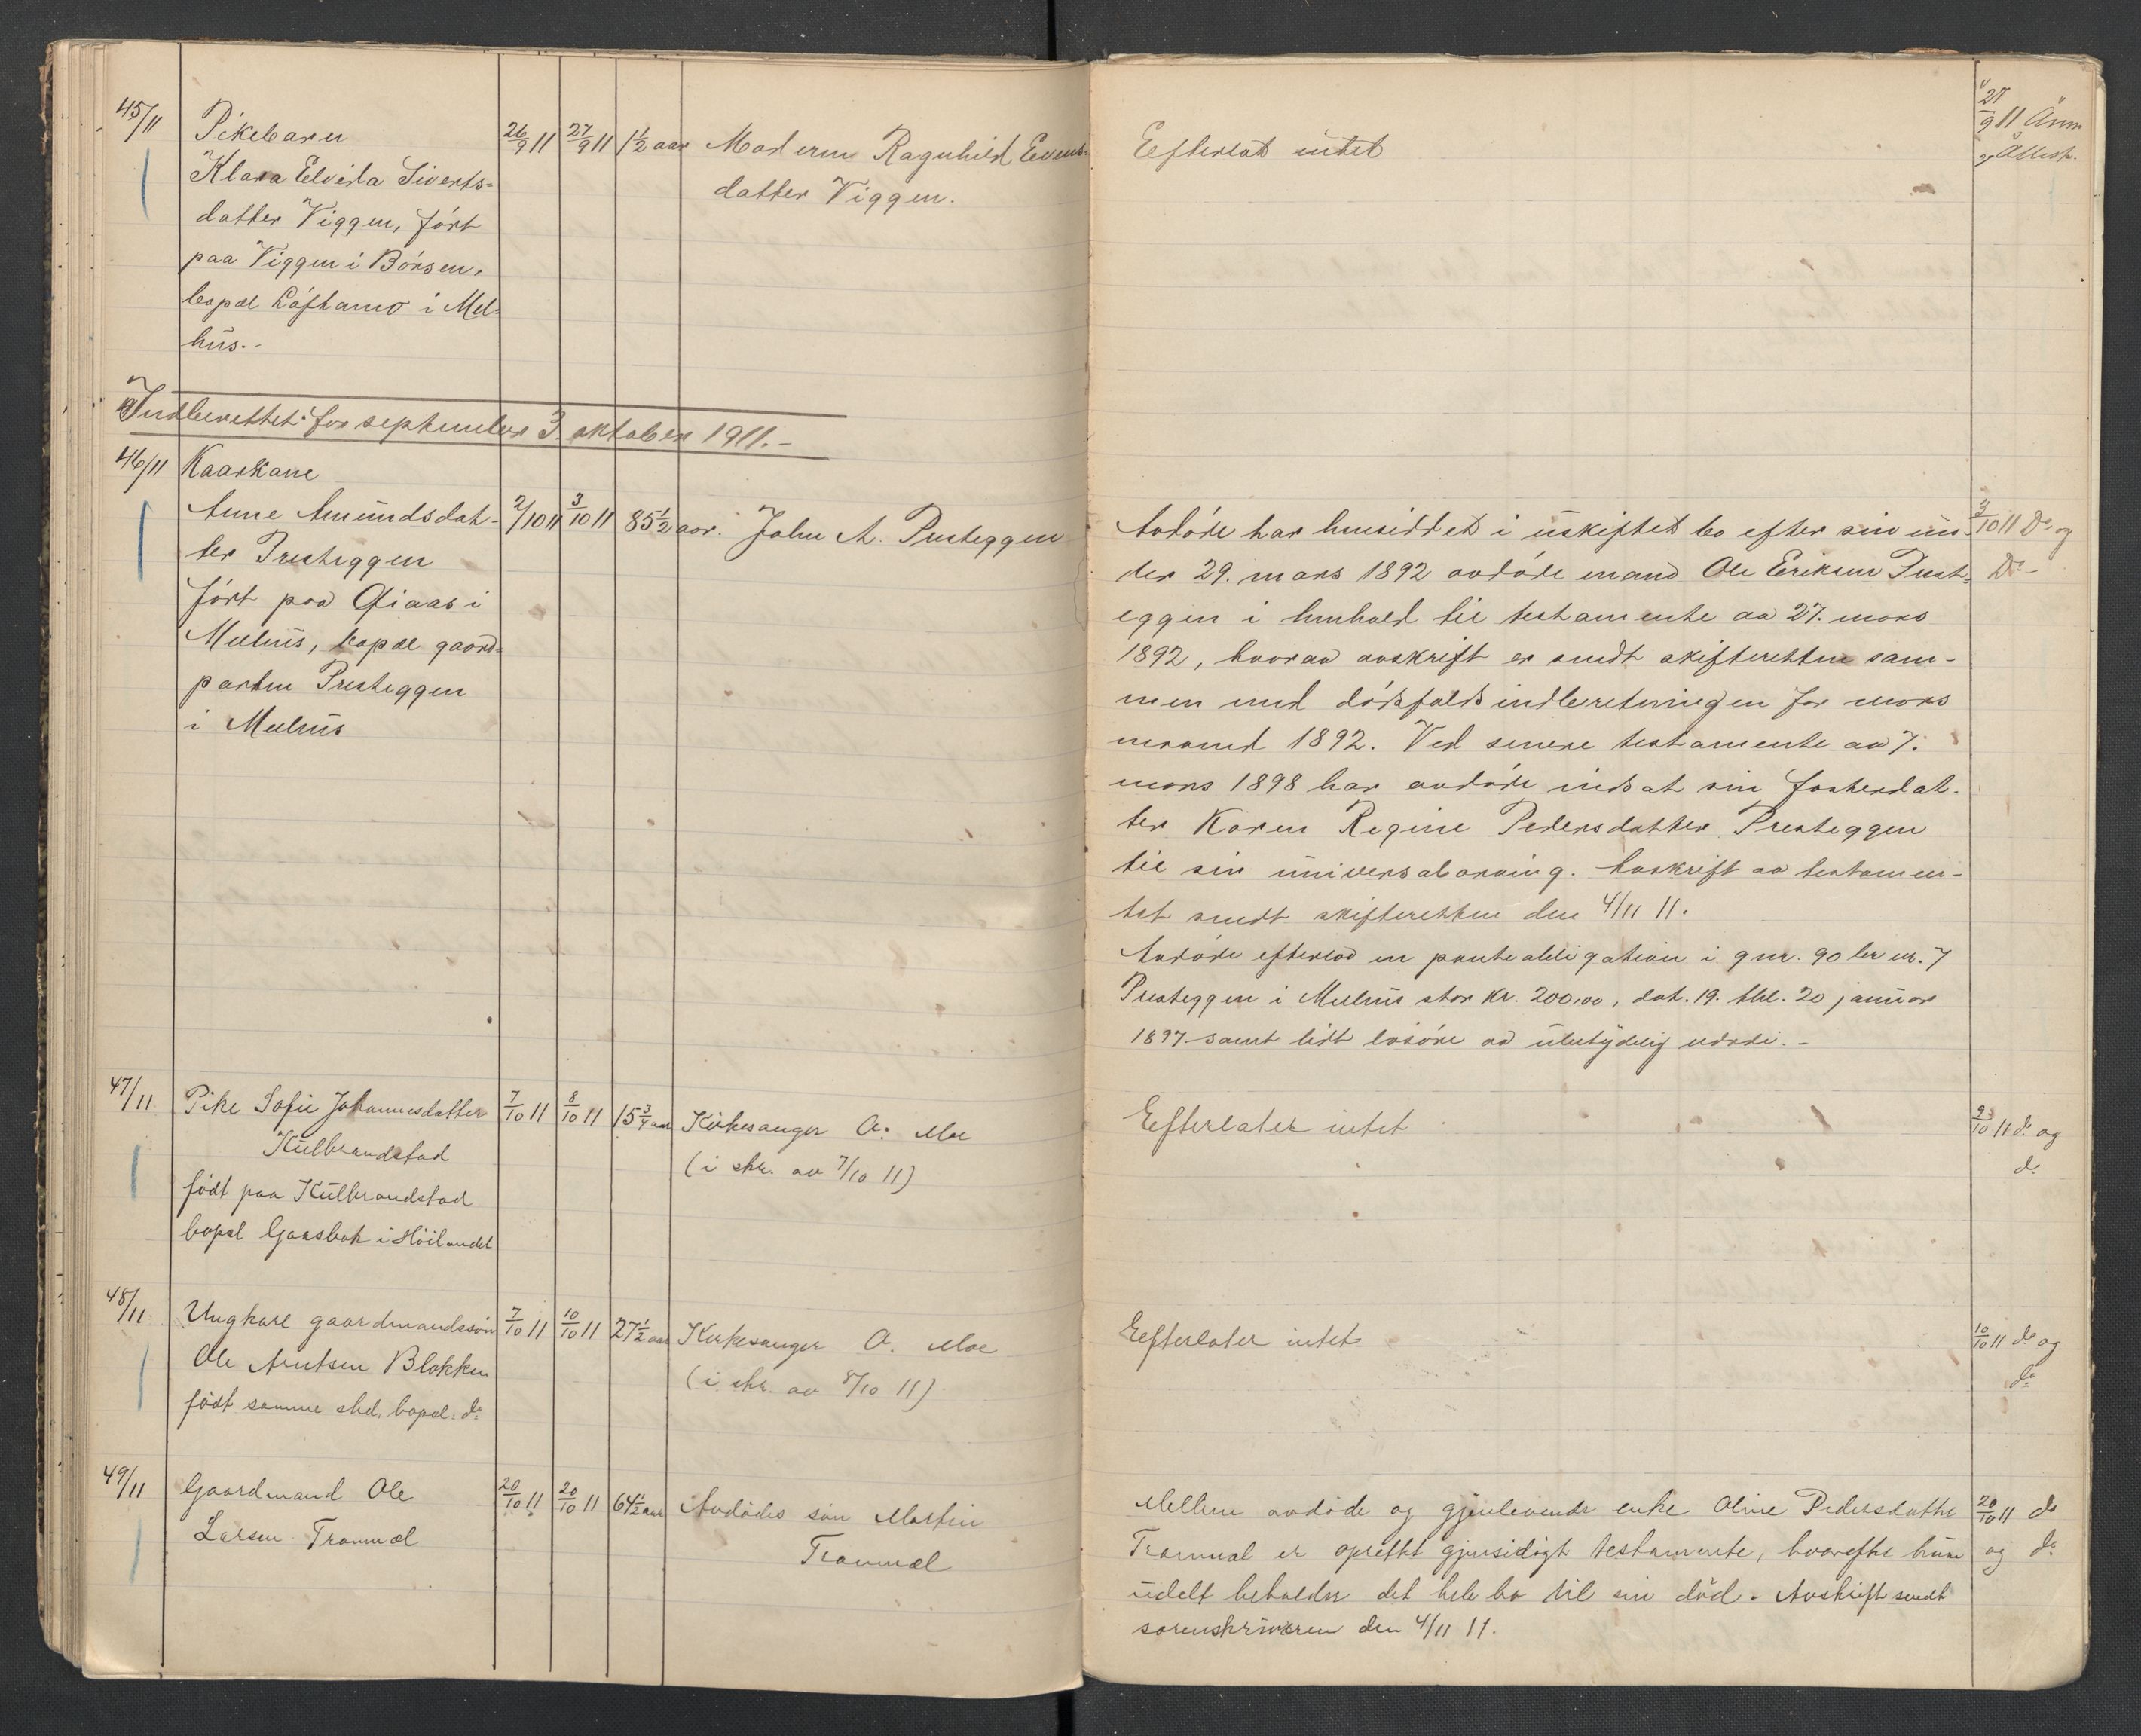 45/11 Pikebarn 26/9 11 27/9 11 1½ aar Moderen Ragnhild Evens-
Klara Elvida Siverts-
datter Viggen, født datter Viggen.
paa Viggen i Børsen,
bopæl Løftamo i Mel-
hus.-
Efterlot intet 27/9 11 Anm
og Attest.
Indberettet for september 3. oktober 1911.-
46/11 Kaarkone
Anne Amundsdat- 2/10 11 3/10 11 85½ aar. John A. Presteggen
ter Presteggen
født paa i
Melhus, bopæl gaard-
parten Presteggen
i Melhus
Avdøde har hensiddet i uskiftet bo efter sin un- 3/10 11 Do og
der 29. mars 1892 avdøde mand Ole Eriksen Prest- Do-
eggen i henhold til testamente av 27. mars
1892, hvorav avskrift er sendt skifteretten sam-
men med dødsfaldsindberetningen for mars
maaned 1892. Ved senere testamente av 7.
mars 1898 har avdøde indsat sin fosterdat-
ter Karen Regine Pedersdatter Presteggen
til sin universalarving. Avskrift av testamen-
tet sendt skifteretten den 4/11 11.
Avdøde efterlod en panteobligation i gnr. 90 br nr. 7
Presteggen i Melhus stor kr. 200,00, dat. 19. thl. 20 januar
1897 samt lidt løsøre av ubetydelig værdi.-
47/11 Pike Sofie Johannesdatter 7/10 11 8/10 11 15¾ aar Kirkesanger O. Moe
Kulbrandstad (i skr. av 7/10 11)
født paa Kulbrandstad
bopæl Gaasbak i Høilandet
Efterlater intet 23/10 11 do og
do
48/11 Ungkarl gaardmandssøn 7/10 11 10/10 11 27½ aar Kirkesanger O. Moe
Ole Arntsen Blokken (i skr. av 8/10 11)
født samme sted, bopæl: do
Efterlater intet 10/10 11 do og
do
49/11 Gaardmand Ole 20/10 11 20/10 11 64½ aar Avdødes søn Martin
Larsen Tranmæl Tranmæl
Mellem avdøde og gjenlevende enke Oline Pedersdatter 20/10 11 do
Tranmæl er oprettet gjensidigt testamente, hvorefter hun og do
udelt beholder det hele bo til sin død. Avskrift sendt
sorenskriveren den 4/11 11.